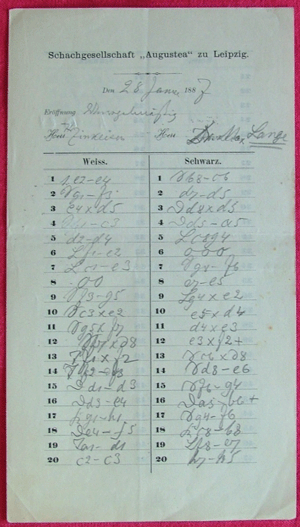 Schachgesellschaft „Augustea" zu Leipzig.
Den 26 Januar 1887
Eröffnung:
Herr Herr Lange
Weiss. Schwarz.
1 e2-e4 1 Sb8-c6
2 Sg1-f3 2 d7-d5
3 e4xd5 3 Dd8xd5
4 Sb1-c3 4 Dd5-a5
5 d2-d4 5 Lc8g4
6 Lf1-e2 6 0-0-0
7 Lc1-e3 7 Sg8-f6
8 0-0 8 e7-e5
9 Sf3-g5 9 Lg4xe2
10 Sc3xe2 10 e5xd4
11 Sg5xf7 11 d4xe3
12 Sf7xd8 12 e3xf2+
13 Tf1xf2 13 Sc6xd8
14 14 Sd8-e6
15 Dd1-d3 15 Sf6-g4
16 Dd3-e4 16 Da5-b6+
17 Kg1-h1 17 Sg4-f6
18 De4-f5 18 Kc8-b8
19 Ta1-d1 19 Lf8-e7
20 c2-c3 20 h7-h5